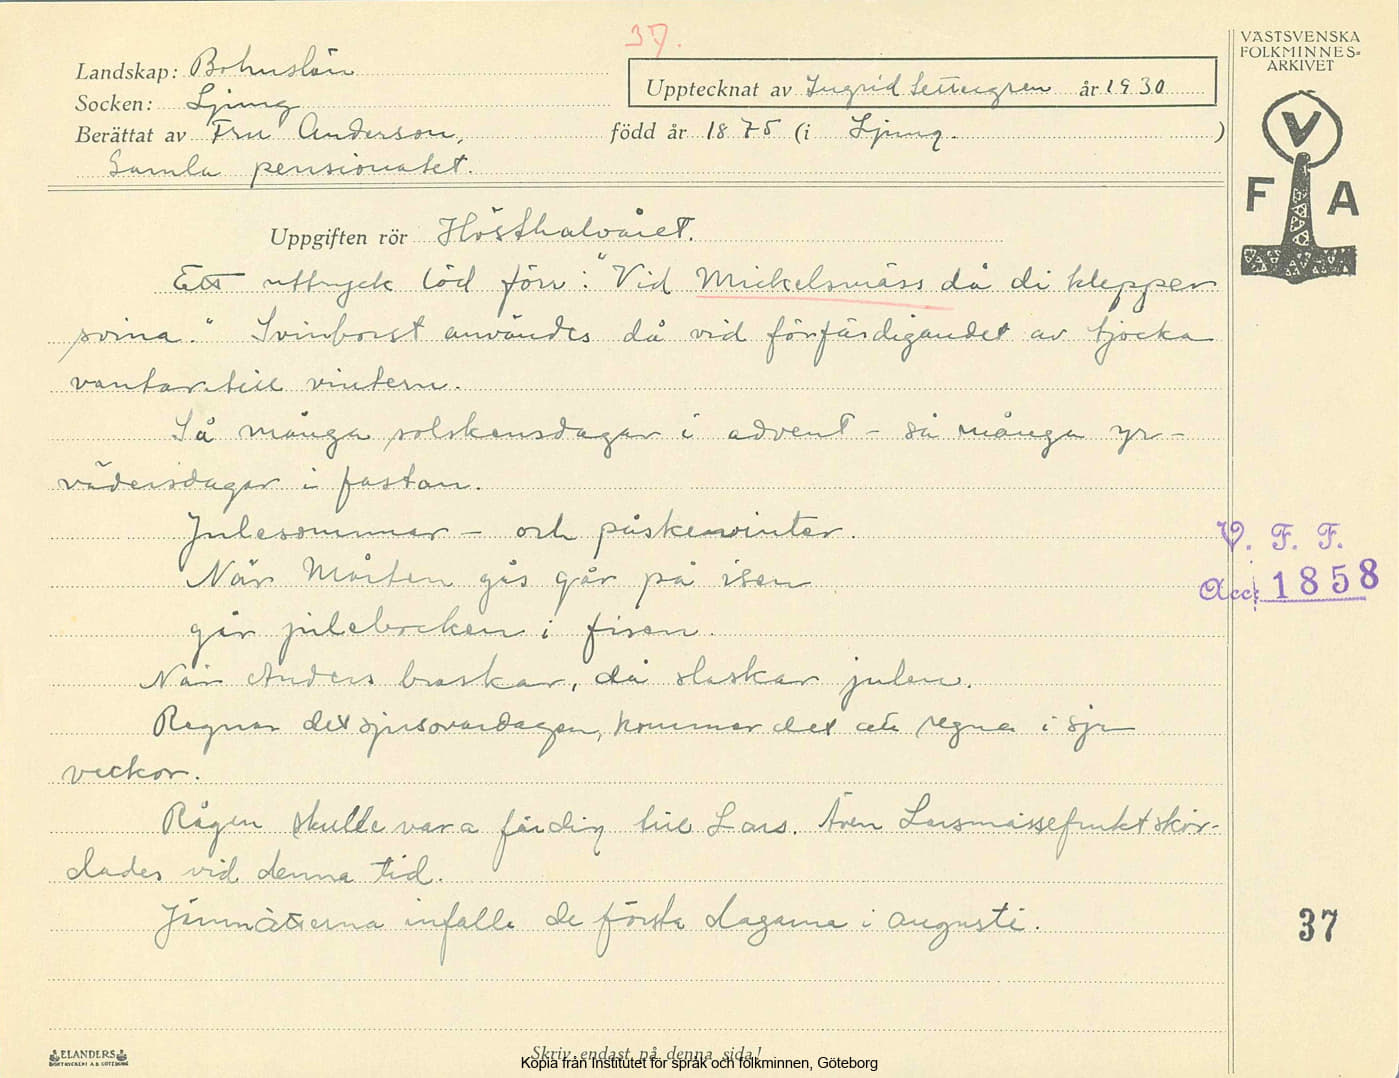 37.
VÄSTSVENSKA
FOLKMINNES-
ARKIVET
Landskap: Bohuslän
Upptecknat av Ingrid Settergren år 1930
Socken: Ljung
Berättat av Fru Anderson, född år 1875 (i Ljung. )
Gamla pensionatet.
V
F A
Uppgiften rör Hösthalvåret.
Ett uttryck löd förr: "Vid Mickelsmäss då di klepper
svina." Svinborst användes då vid förfärdigandet av tjocka
vantar till vintern.
Så många solskensdagar i advent - så många yr-
vädersdagar i fastan.
Julesommar - och påskevinter.
V. F. F.
När Mårten gås går på isen
Acc: 1858
går julebocken i fisen.
När Anders braskar, då slaskar julen.
Regnar det sjusovardagen, kommer det att regna i sju
veckor.
Rågen skulle vara färdig till Lars. Även Larsmässefrukt skör-
dades vid denna tid.
Järnnätterna infalla de första dagarna i augusti.
37
ELANDERS
BOKTRYCKERI A.B. GÖTEBORG
Skriv endast på denna sida!
Kopia från Institutet för språk och folkminnen, Göteborg